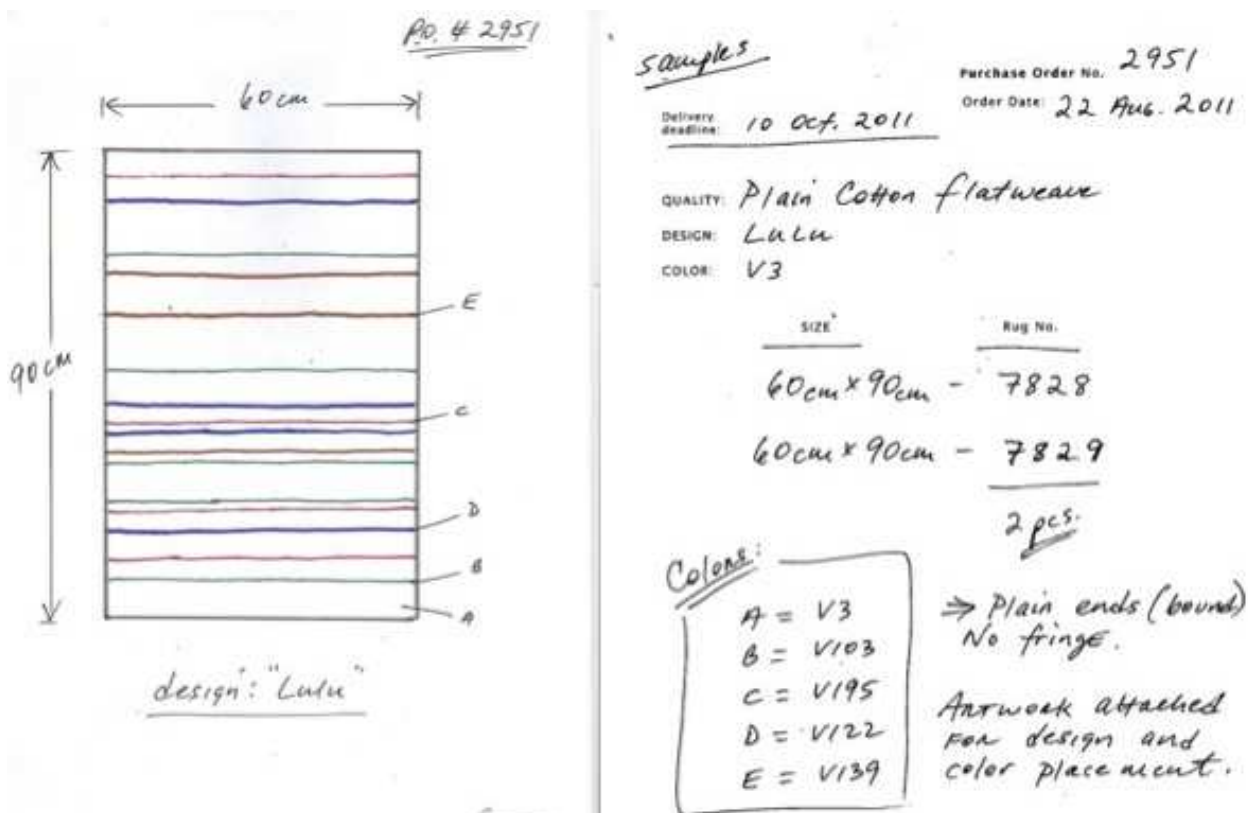 P.O. # 2951
60cm
90cm
E
C
D
B
A
design: "Lulu"
samples
Purchase Order No. 2951
Order Date: 22 Aug. 2011
Delivery deadline: 10 Oct. 2011
QUALITY: Plain Cotton flatweave
DESIGN: LuLu
COLOR: V3
SIZE Rug No.
60cm x 90cm - 7828
60cm x 90cm - 7829
2 pcs.
Colors:
A = V3
B = V103
C = V195
D = V122
E = V139
⇒ Plain ends (bound)
No fringe.
Artwork attached
For design and
color placement.